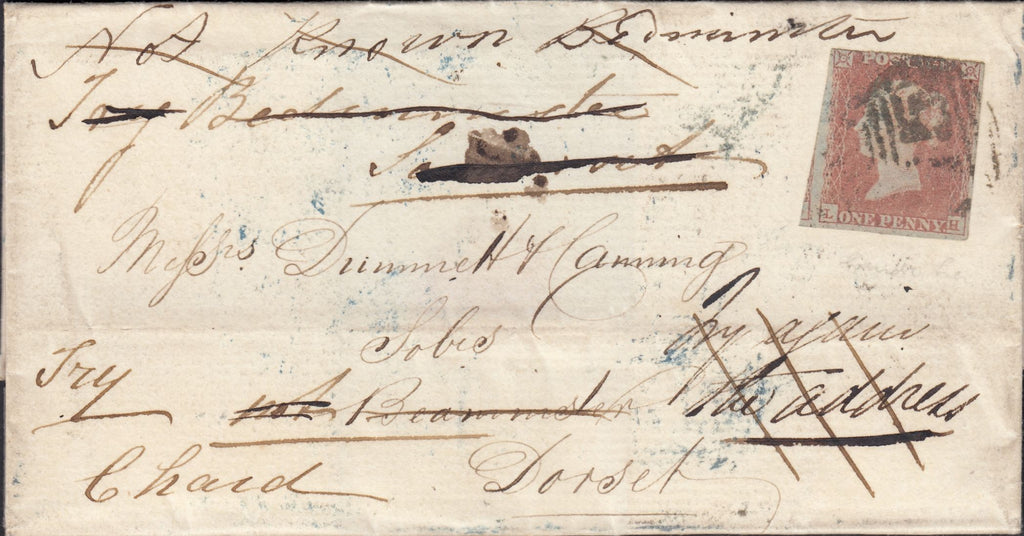 Not Known Bedminster
Try Bedminster
Somerset
POSTAGE
L ONE PENNY H
Messrs Dummett & Canning
Solrs
Try again
the address
Try
Beaminster
Chard
Dorset